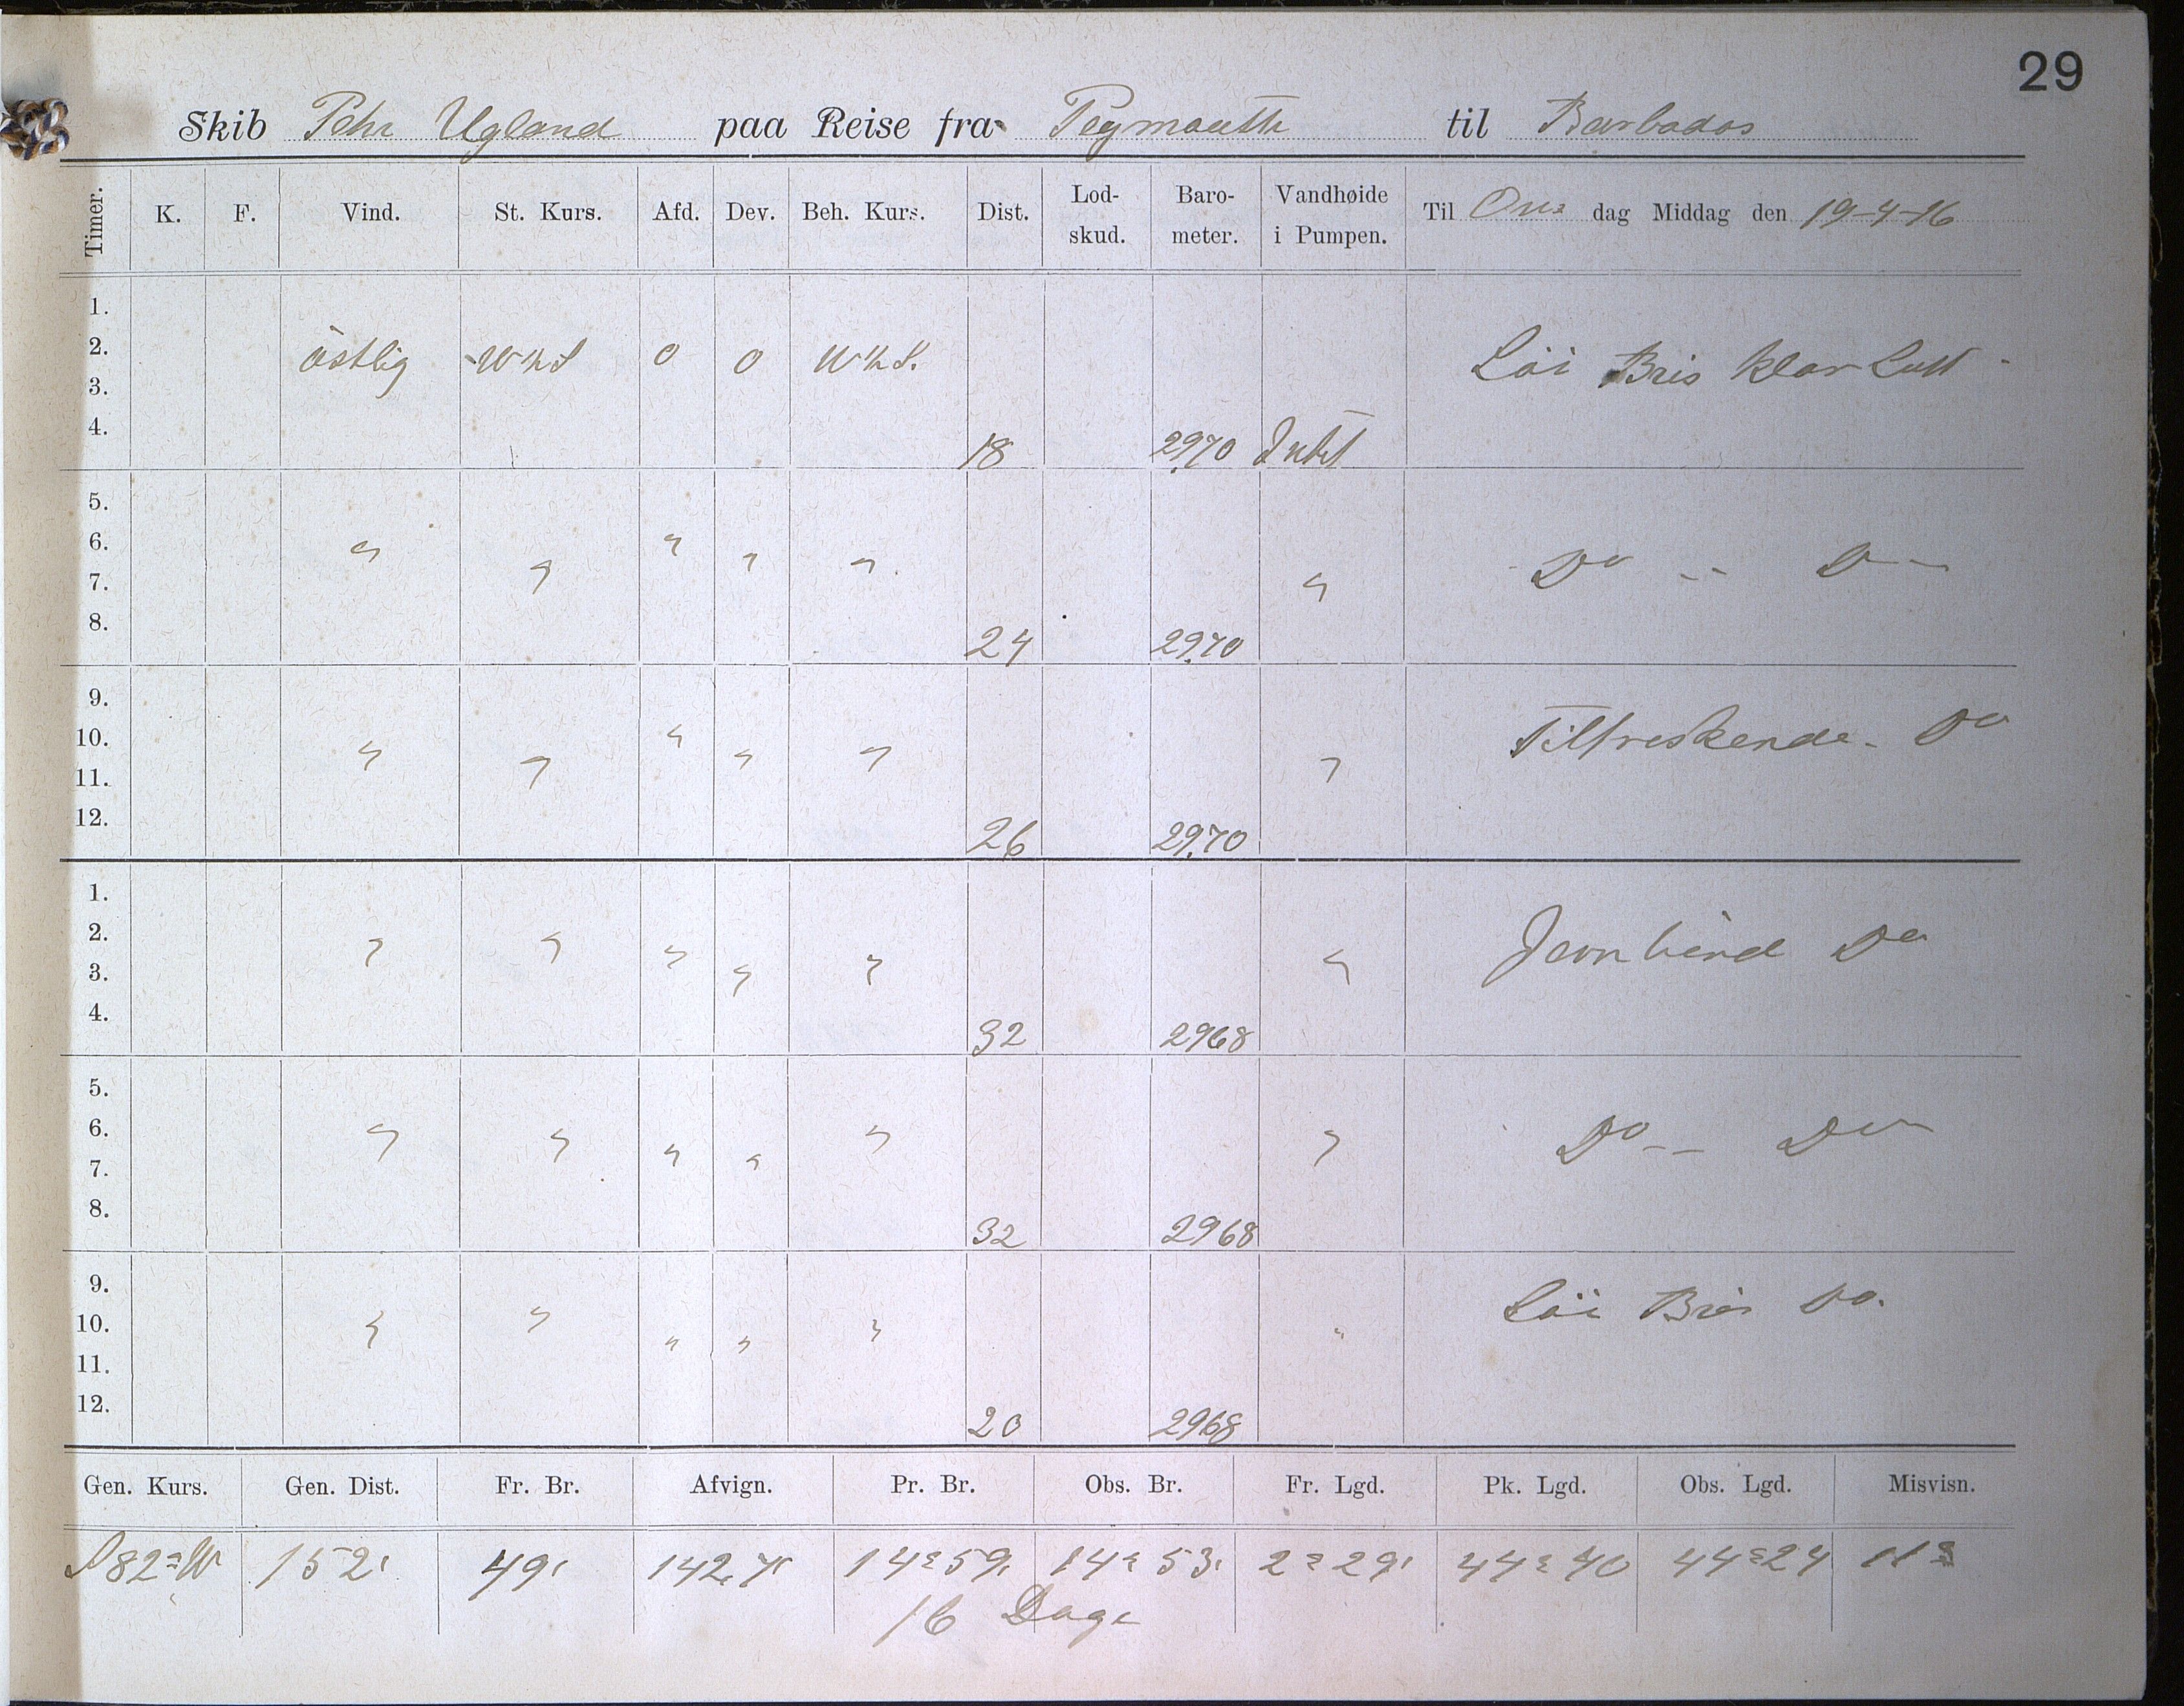 29
Skib Pehr Ugland paa Reise fra Peymouth til Barbados
Timer. K. F. Vind. St. Kurs. Afd. Dev. Beh. Kurs. Dist. Lod-skud. Baro-meter. Vandhøide i Pumpen. Til Ons dag Middag den 19-4-16
1.
2. östlig WhS 0 0 WhS. Löi Bris klar Luft
3.
4. 18 29,70 Intet
5.
6. " " " " " " Do -- D--
7.
8. 24 29,70
9.
10. " " " " " " Tilfriskende - Do
11.
12. 26 29,70
1.
2. " " " " " " Jevn Vind Do
3.
4. 32 2968
5.
6. " " " " " " Do -- Do
7.
8. 32 2968
9.
10. " " " " " " Löi Bris Do.
11.
12. 20 2968
Gen. Kurs. Gen. Dist. Fr. Br. Afvign. Pr. Br. Obs. Br. Fr. Lgd. Pk. Lgd. Obs. Lgd. Misvisn.
S82°W 152' 49' 14°59' 14°53' 2°29' 44°40 44°24
16 Dage